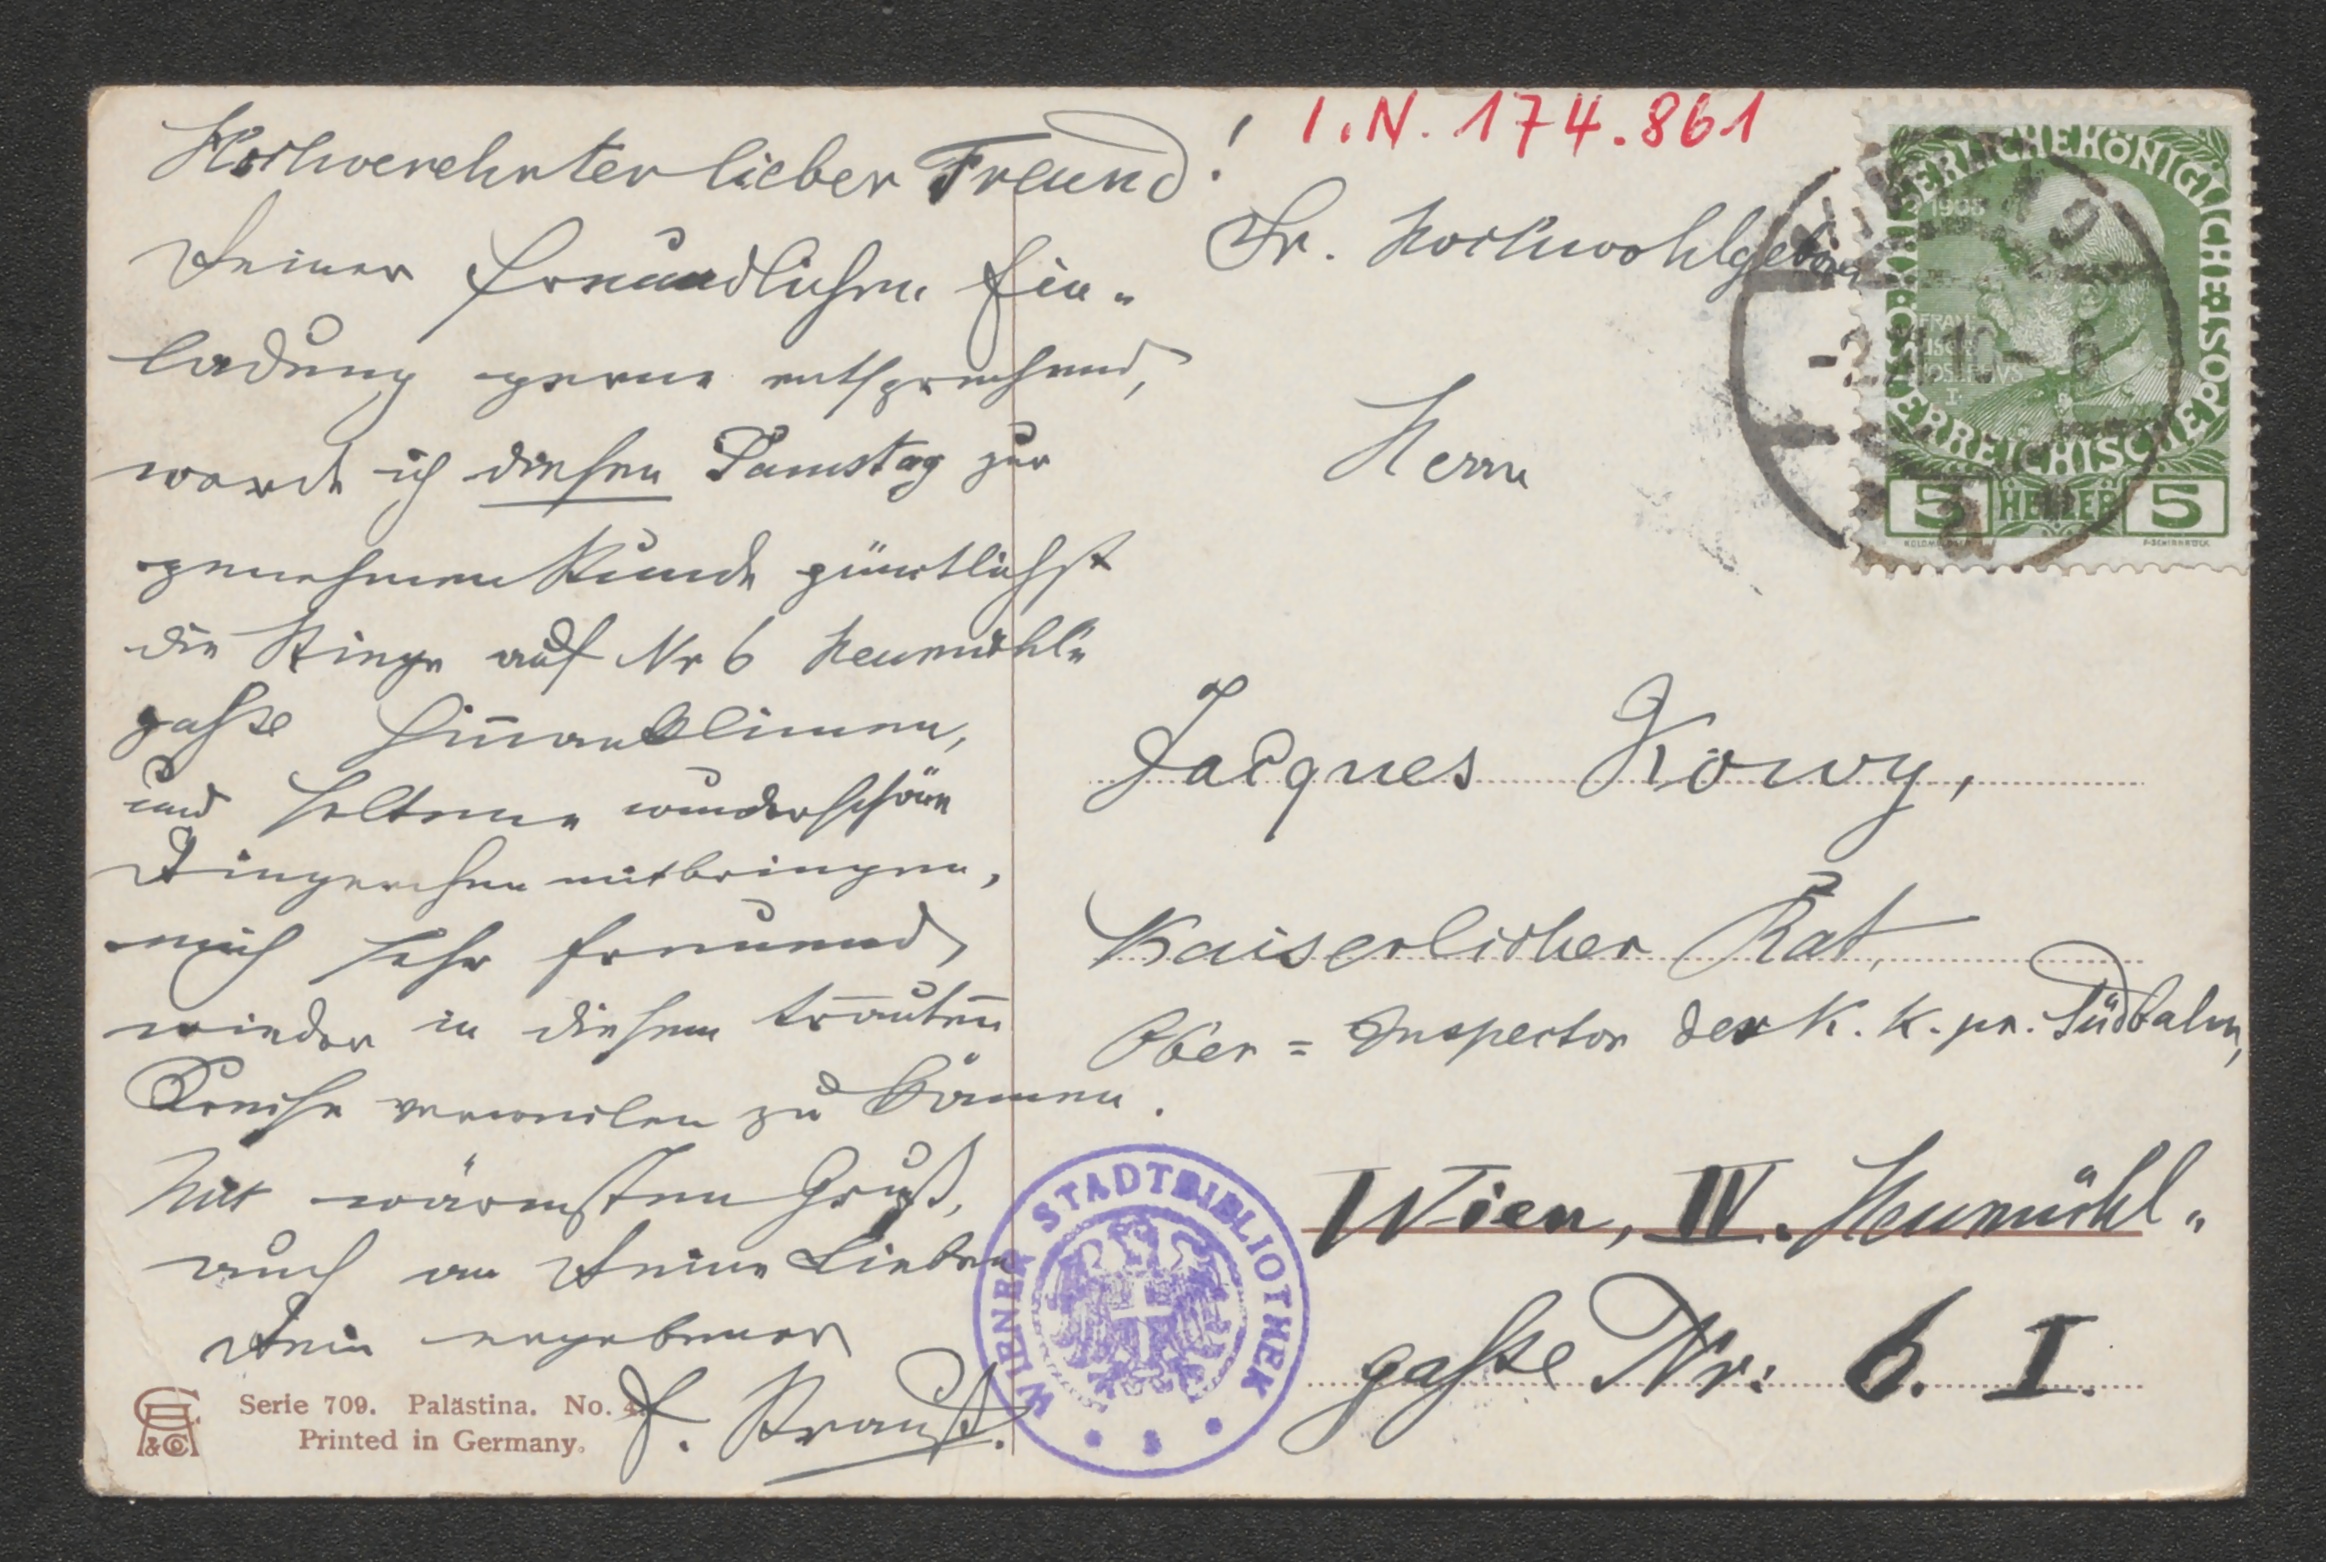 Hochverehrter lieber Freund!
Deiner freundlichen Ein-
ladung gerne entsprechend,
werde ich diesen Samstag zur
genehmen Stunde pünktlichst
die Stiege auf Nr 6 Heumühl-
gasse hinanklimmen,
und seltene wunderschöne
Dingerchen mitbringen,
mich sehr freuend,
wieder in diesem trauten
Kreise verweilen zu können.
Mit wärmsten Gruß,
auch an Deine Lieben
Dein ergebener
Strauß.
Serie 709. Palästina. No. 4.
Printed in Germany.
I.N. 174.861
Sr. Hochwohlgeboren
Herrn
Jacques Kowy,
Kaiserlicher Rat,
Ober=Inspector der K. K. pr. Südbahn,
Wien, IV. Heumühl-
gasse Nr: 6. I.
KAISERLICHE KÖNIGLICHE ÖSTERREICHISCHE POST
1908
FRANZ
IOSEPHVS
I.
5 HELLER 5
WIENER STADTBIBLIOTHEK